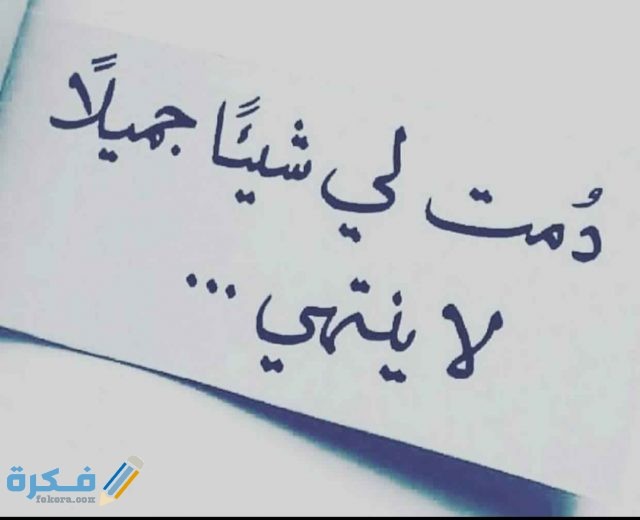 دُمت لي شيئًا جميلًا
لا ينتهي ...
فكرة
fekera.com